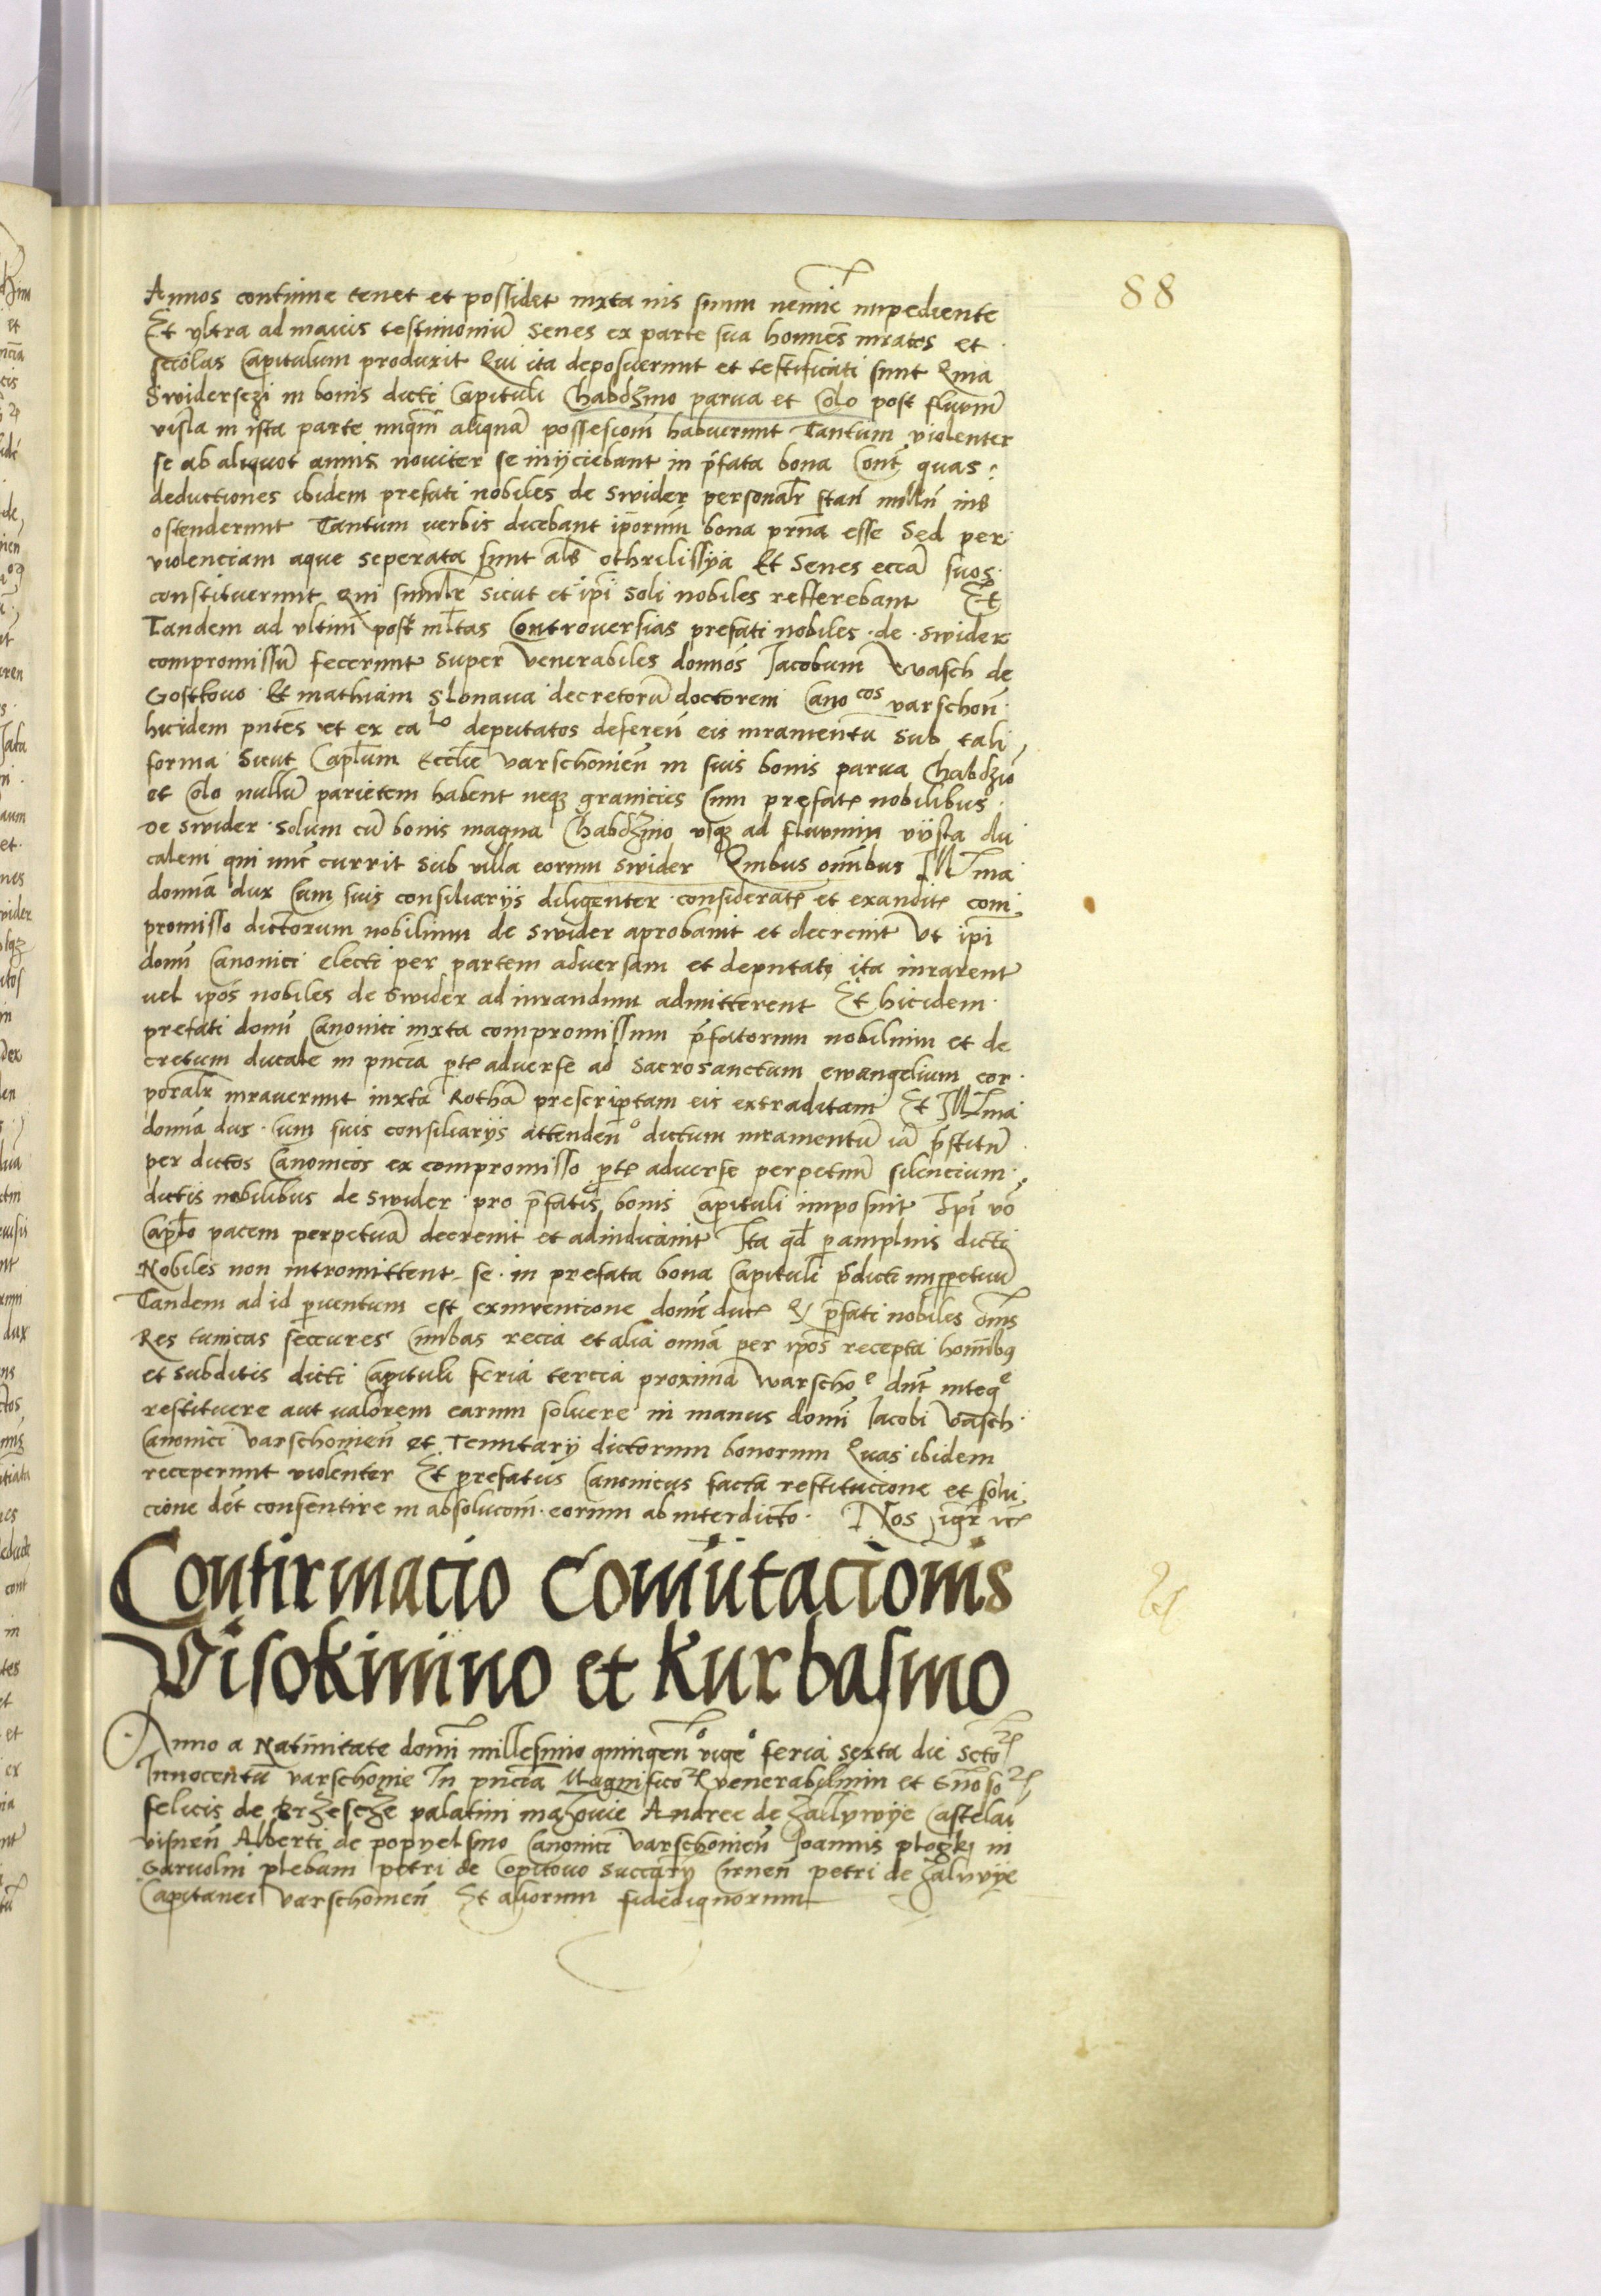 88
Annos continue tenet et possidet iuxta ius suum nemīe impediente
Et vltra ad maius testimoniū Senes ex parte sua homīes iuratos et
secolas Capitulum produxit Qui ita deposuerunt et testificati sunt Quia
Swidersczi in bonis dicti Capituli Chabdzino parua et Colo post fluuiū
visla in ista parte nuqm̄ aliquā possesiom̄ habuerunt Tantum violenter
se ab aliquot annis nouiter se inijciebant in p̄fata bona Cont̄ quas
deductiones ibidem prefati nobiles de Swider personalr̄ stan̄ nulln̄ ius
ostenderunt Tantum verbis dicebant ip̄orum bona prn̄a esse Sed per
violenciam aque seperata sunt al̄s othrilissya Et Senes ecciā suos
constituerunt qui similr̄ sicut et ip̄i soli nobiles refferebant Et
Tandem ad vltimū post ml̄tas Controuersias prefati nobiles de Swider
compromissū fecerunt super venerabiles domn̄os Jacobum Wasch de
Gostkouo Et mathiam Slonaua decretorū doctorem Canocos varschon̄
hicidem pn̄tes et ex calo deputatos deferen̄ eis iuramentū sub tali
forma Sicut Capl̄um Eccl̄ie varschouien̄ in suis bonis parua Chabdzino
et Colo nullū parietem habent neqz granicies Cum prefatȝ nobilibus
de Swider Solum cū bonis magna Chabdzino vsqz ad fluuium vijsla du
caleni qui nūc currit sub villa eorum Swider Quibus om̄ibus Ill̄ma
domn̄a dux Cum suis consiliarijs diligenter consideratȝ et exauditȝ com
promisso dictorum nobilium de Swider aprobauit et decreuit Vt ip̄i
domn̄i Canonici electi per partem aduersam et deputati ita iurarent
uel ip̄os nobiles de Swider ad iurandum admitterent Et hicidem
prefati domn̄i Canonici iuxta compromissum p̄fatorum nobilium et de
cretum ducale in pn̄cia ꝑtȝ aduerse ad Sacrosanctum ewangelium cor
poralr̄ iurauerunt iuxta Rothā prescriptam eis extraditam Et Ill̄ma
domn̄a dux Cum suis consiliarijs attenden̄o dictum iuramentū iā p̄stitū
per dictos Canonicos ex compromisso ꝑtȝ aduerse perpetuū silencium
dictis nobilibus de Swider pro p̄fatis bonis Capituli imposuit Ip̄i vo̅
Capl̄o pacem perpetuā decreuit et adiudicauit Ita qd̄ ꝑamplius dicti
Nobiles non intromittent se in prefata bona Capituli p̄dicti imꝑpetuū
Tandem ad id ꝑuentum est ex inuencione domn̄e ducȝ Qȝ p̄fati nobiles om̄s
Res tunicas seccures Cimbas reccia et alia omn̄ia per ip̄os recepta hom̄ibꝯ
et subditis dicti Capituli feria tercia proxima Warschoe dn̄t intege
restituere aut valorem earum soluere in manus domn̄i Jacobi Vasch
Canonici Varschouien̄ et Tenutarij dictorum bonorum Quas ibidem
receperunt violenter Et prefatus Canonicus facta restitucione et solu
cione det̄ consentire in absoluciom̄ eorum ab interdicto Nos igr̄ ītȝ
Confirmacio Comūtacionis
Visokinino et Kurbasino
Anno a Natiuitate domīni millesimo quingen̄o vigeo feria sexta die Sctoꝝ
Innocentū varschouie In pn̄cia Magnificoꝝ venerabilium et Gn̄osoꝝ
felicis de Brzescze palatini mazouie Andree de Zallywije Castelai
visnen̄ Alberti de popyelsino Canonici Varschouien̄ Joannis plogki in
Garuolin plebani petri de Copitouo Succarij Cirnen̄ petri de Zalywije
Capitanei Varschouien̄ Et aliorum fidedignorum